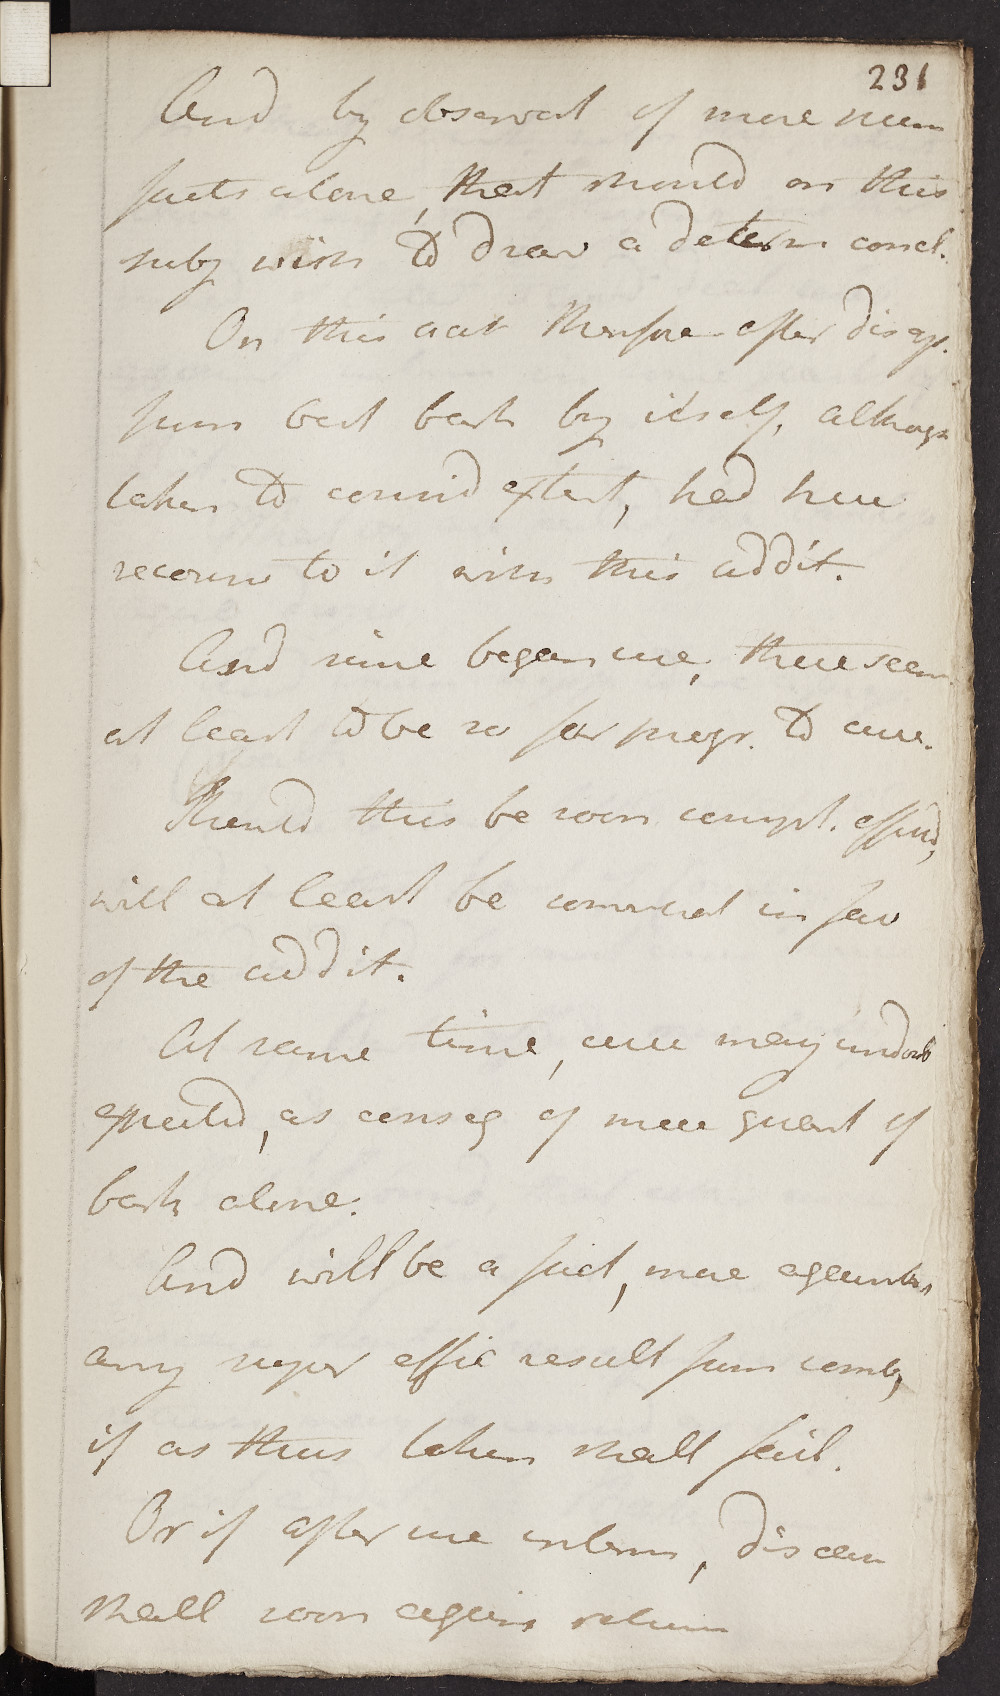 231
And by observat of mere num
facts alone, that should on this
subj wish to draw a determ concl.
On this acct therefore after disap.
from last bark by itself, although
taken to consid extent, had here
recourse to it with this addit.
And since began use, there seem
at least to be so far progr. to cure.
Should this be soon compl. effectd,
will at least be somewhat in fav
of the addit.
At same time, cure may undoub
expected, as conseq of mere quant of
bark alone.
And will be a fact, more against
any super effic result from comb,
if as thus taken shall fail.
Or if after use interm, disease
shall soon again return